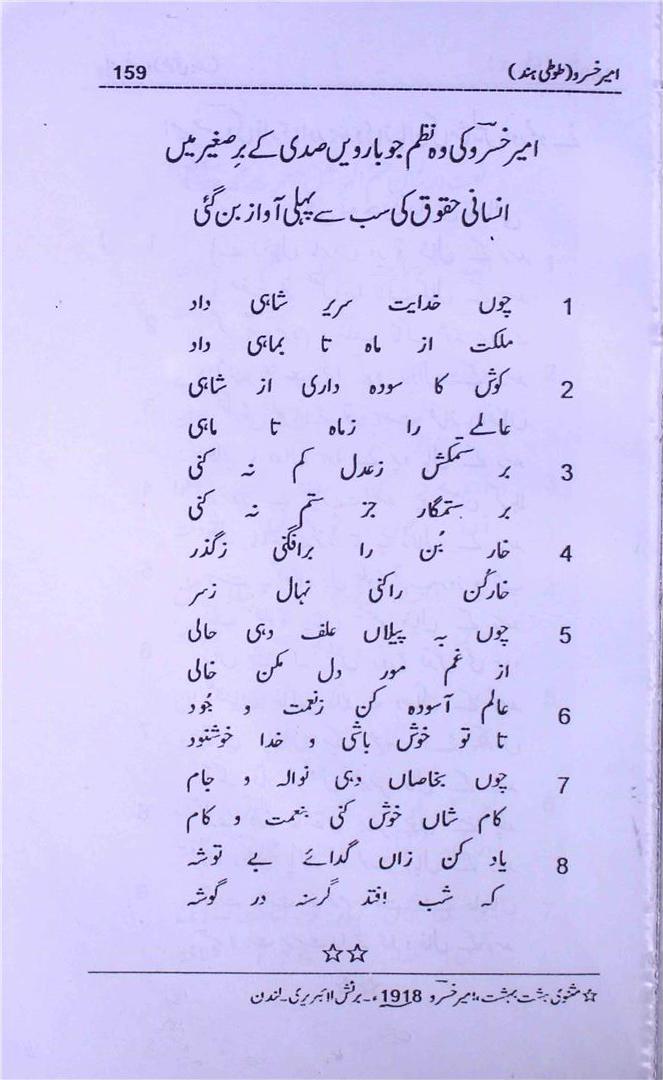 امیر خسرو (طوطی ہند) 159
امیر خسروؔ کی وہ نظم جو بارویں صدی کے برِصغیر میں
انسانی حقوق کی سب سے پہلی آواز بن گئی
1 چوں خدایت سریر شاہی داد
ملکت از ماہ تا بماہی داد
2 کوش کا سودہ داری از شاہی
عالمے را زماہ تا ماہی
3 بر ستمکش زعدل کم نہ کنی
بر ستمگار جز ستم نہ کنی
4 خار بُن را برافگنی زگذر
خارکُن راکنی نہال زسر
5 چوں بہ پیلاں علف دہی حالی
از غم مور دل مکن خالی
6 عالم آسودہ کن زنعمت و جود
تا تو خوش باشی و خدا خوشنود
7 چوں بخاصاں دہی نوالہ و جام
کام شاں خوش کنی بنعمت و کام
8 یاد کن زاں گدائے بے توشہ
کہ شب افتد گرسنہ در گوشہ
☆☆
☆ مثنوی ہشت بہشت، امیر خسروؔ 1918ء۔ برٹش لائبریری۔ لندن